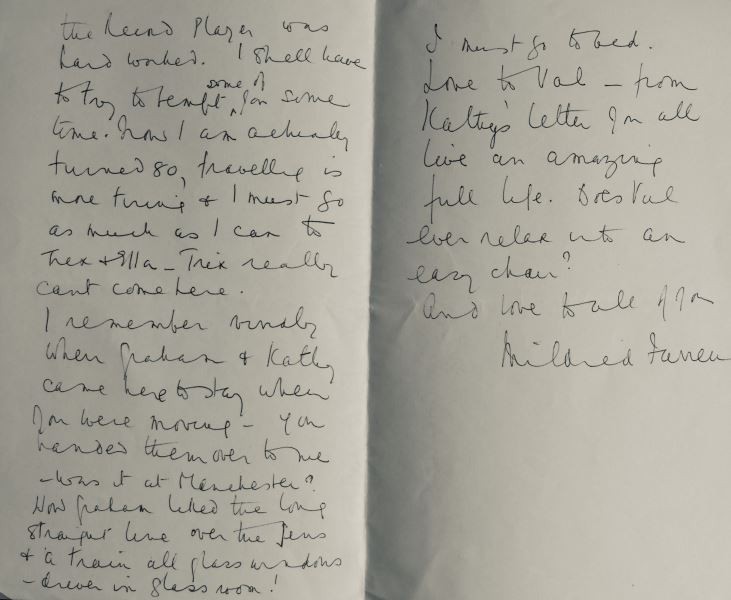 the Record Player was
hard worked. I shall have
to try to tempt some of you some
time. Now I am actually
turned 80, travelling is
more tiring & I must go
as much as I can to
Trix & Ella - Trix really
cant come here.
I remember vividly
when Graham & Kathy
came here to stay when
you were moving - you
handed them over to me
- was it at Manchester?
How Graham liked the long
straight line over the Fens
& a train all glass windows
- driver in glass room!
I must go to bed.
Love to Val - from
Kathy's letter you all
live an amazing
full life. Does Val
ever relax into an
easy chair?
And love to all of you
Mildred